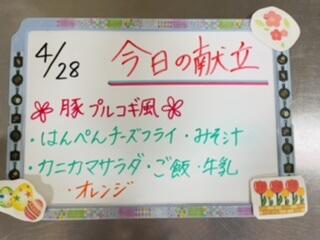 4/28
今日の献立
豚プルコギ風
・はんぺんチーズフライ・みそ汁
・カニカマサラダ・ご飯・牛乳
・オレンジ